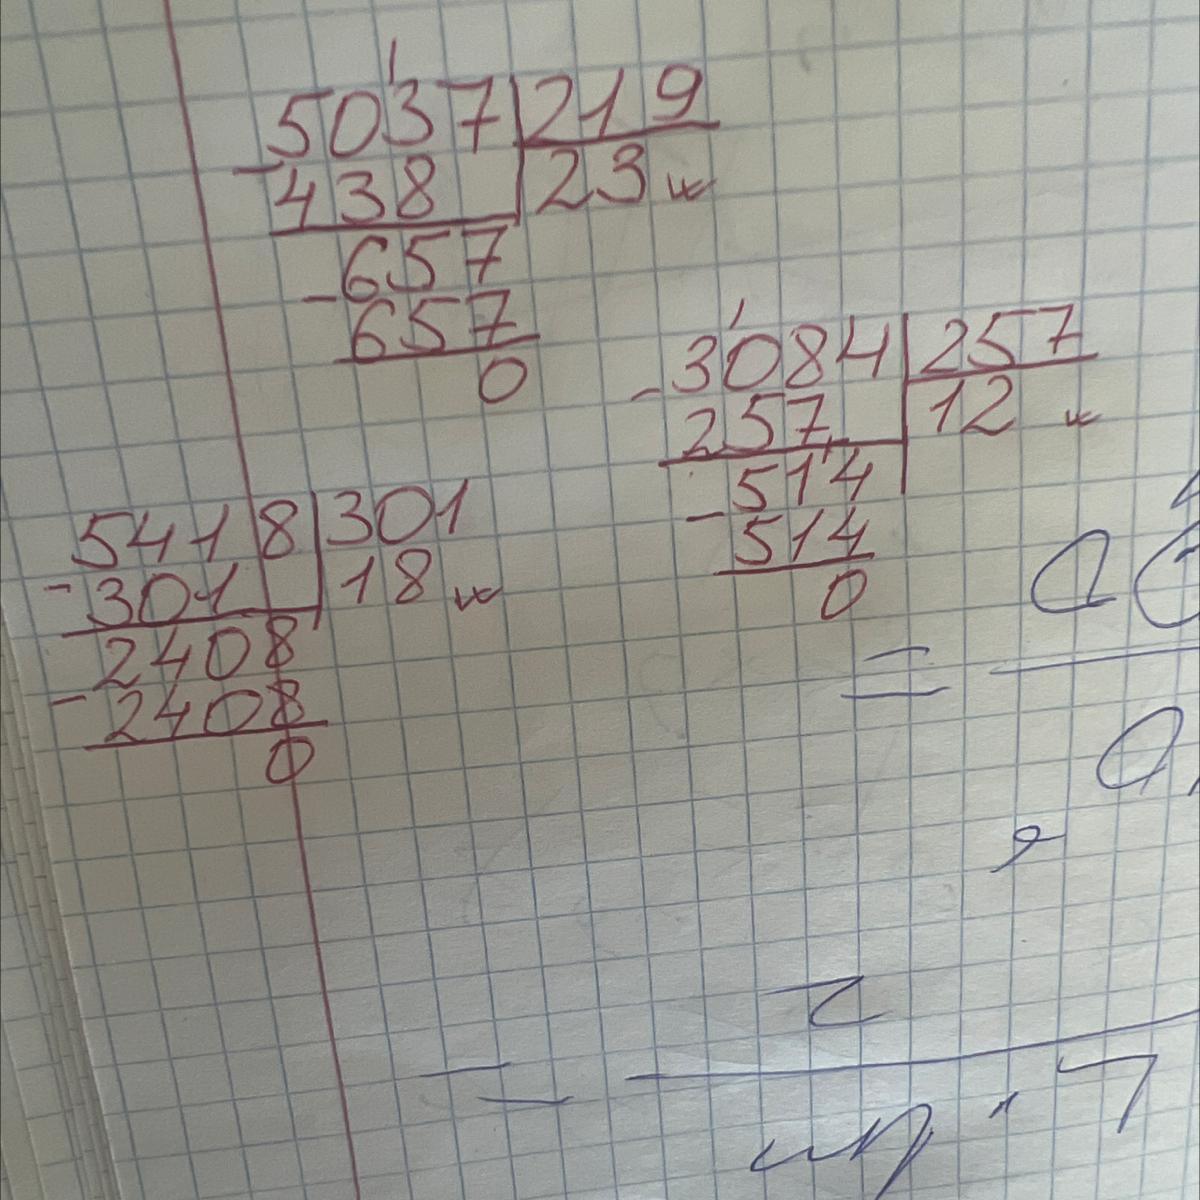 5037 219
- 438 23
657
- 657
0
- 3084 257
257 12
514
- 514
0
5418 301
- 301 18
2408
- 2408
0
=